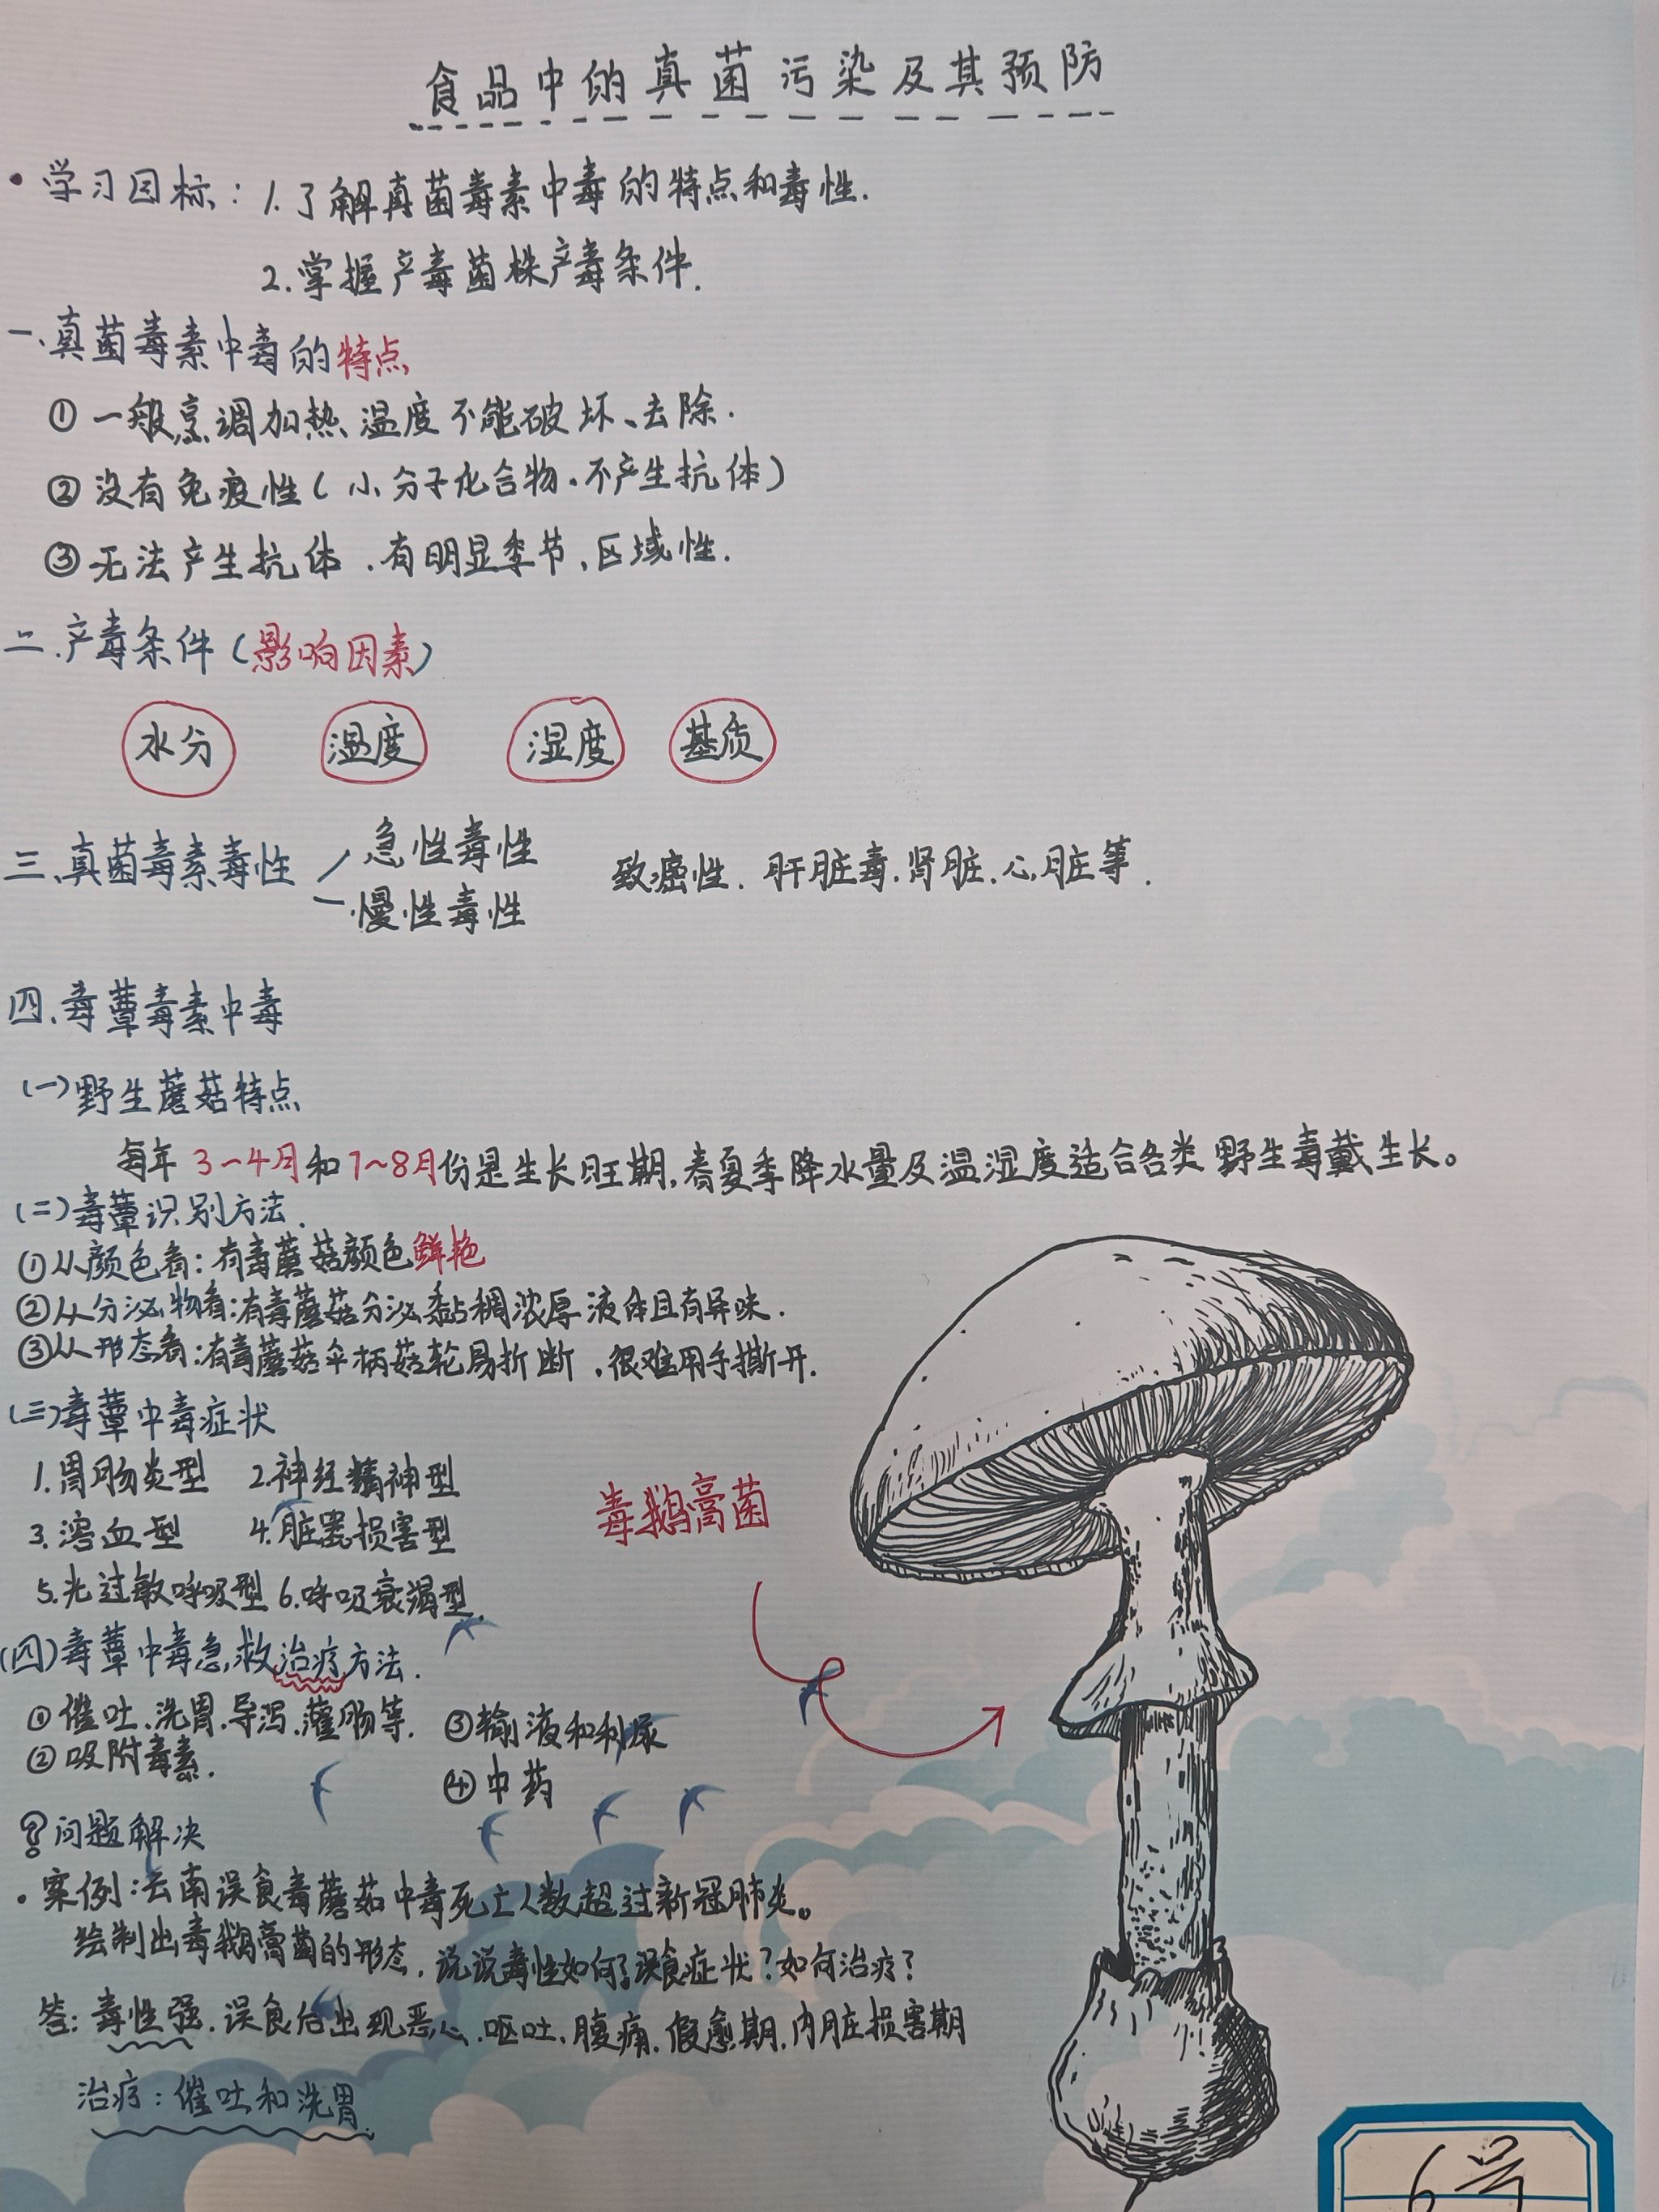 食品中的真菌污染及其预防
• 学习目标：1.了解真菌毒素中毒的特点和毒性.
2.掌握产毒菌株产毒条件.
一、真菌毒素中毒的特点
① 一般烹调加热温度不能破坏、去除.
② 没有免疫性(小分子化合物.不产生抗体)
③ 无法产生抗体.有明显季节、区域性.
二.产毒条件(影响因素)
水分 温度 湿度 基质
三、真菌毒素毒性 急性毒性
慢性毒性
致癌性.肝脏毒.肾脏.心脏等.
四.毒蕈毒素中毒
(一)野生蘑菇特点
每年3~4月和7~8月份是生长旺期,春夏季降水量及温湿度适合各类野生毒蕈生长。
(二)毒蕈识别方法.
①从颜色看:有毒蘑菇颜色鲜艳
②从分泌物看:有毒蘑菇分泌黏稠浓厚液体且有异味.
③从形态看:有毒蘑菇伞柄菇轮易折断,很难用手撕开.
(三)毒蕈中毒症状
1.胃肠炎型 2.神经精神型
3.溶血型 4.脏器损害型
5.光过敏呼吸型 6.呼吸衰竭型.
毒鹅膏菌
(四)毒蕈中毒急救治疗方法.
①催吐.洗胃.导泻.灌肠等. ③输液和利尿
②吸附毒素. ④中药
?问题解决
• 案例:云南误食毒蘑菇中毒死亡人数超过新冠肺炎。
绘制出毒鹅膏菌的形态.说说毒性如何?误食症状?如何治疗?
答:毒性强.误食后出现恶心.呕吐.腹痛.假愈期.内脏损害期
治疗:催吐和洗胃.
6号